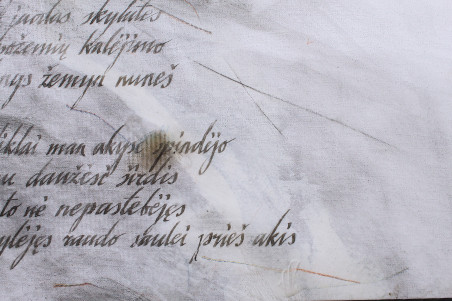 juodas skylutes
požemių kalėjimo
žemyn nuneš
man akyse spindėjo
daužėsi širdis
to nė nepastebėjęs
raudo saulei prieš akis